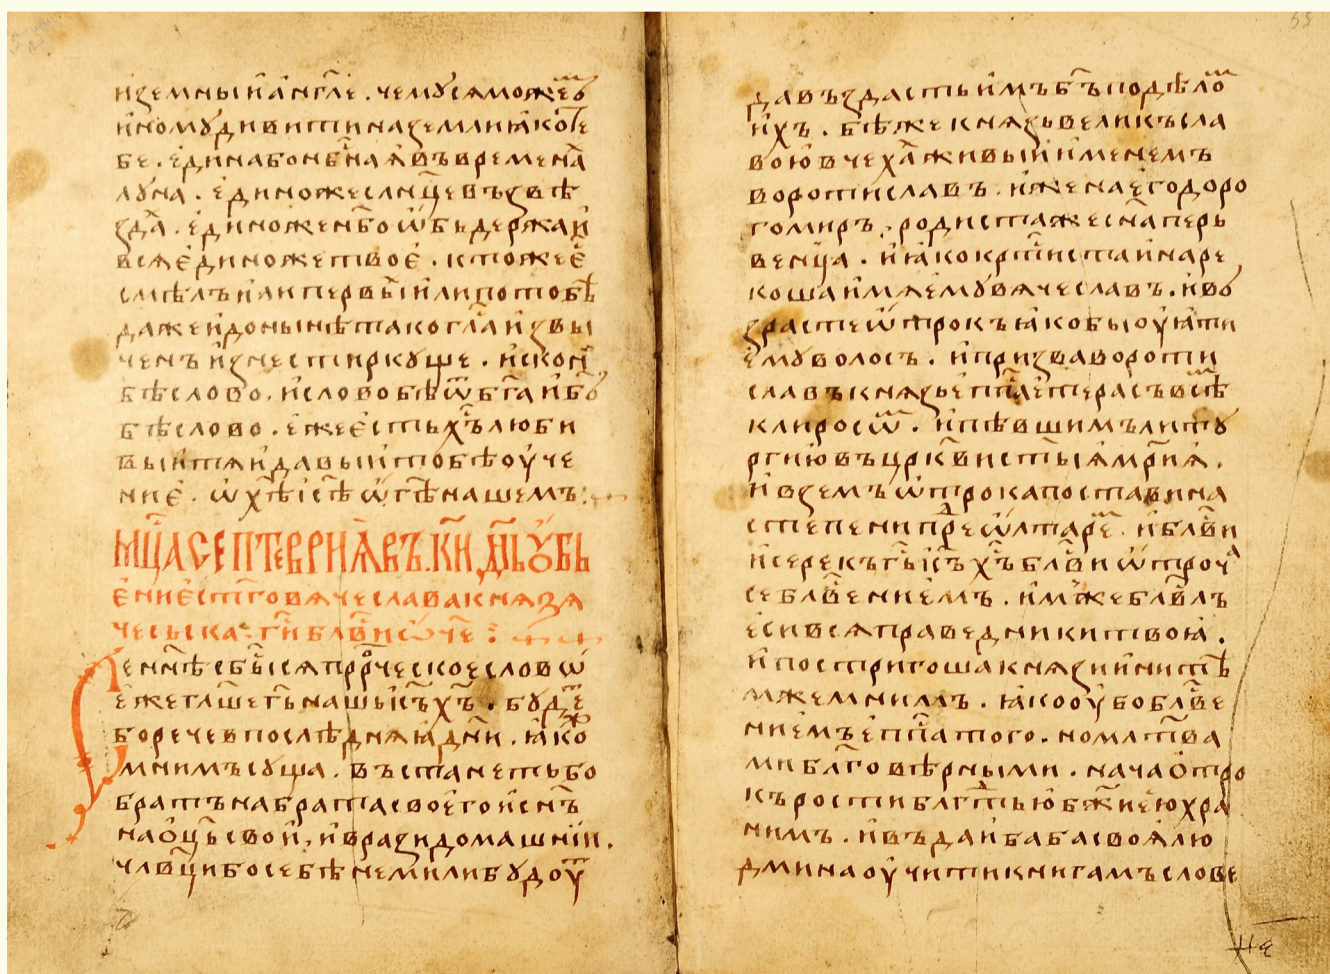 и҆земныи҆ а҆нгл҃е . чемѹ сѧ може ѿ
и҆номѹ дивити на земли ꙗ҆ко т҆е
бе . є҆дина бо н҃бнаꙗ҆ въ времена̀
лѹна . є҆дино же сл҃нце въ звѣ
зда̀ . є҆дино же н҃бо ѡ҆бьдержаи҆
всѧ є҆дино же твоє҆ . кто же є҆
смѣлъ и҆ли первы́и҆ ли по тобѣ̀
даже и҆ донынѣ тако гл҃аи҆ звы
чемъ и҆
бѣ слово . и҆ слово бѣ ѿ б҃га и҆ б҃ъ
бѣ слово . є҆же є҆сть х҃ъ люби
выи҆ тѧ и҆ давыи҆ тобѣ ѹ҆че
ниє҆ . ѡ҆ х҃ѣ і҃сѣ ѡ҆ г҃ѣ нашемъ :~
мц҃а септевриꙗ҆ въ . к҃и . дн҃ь ѹ҆бь
є҆ниє҆ ст҃го вѧчеслава кнѧзѧ
чесьска . г҃и бл҃ви ѡ҆ч҃е :
Се н҃нѣ сбы́сѧ прⷪ҇рческое слово
є҆же гл҃аше г҃ь нашь і҃съ х҃ъ . бѹде
бо рече в послѣднѧꙗ҆ дн҃и . ꙗ҆ко
мнимъ сѹща . въстанеть бо
братъ на брата своє҆го и҆ сн҃ъ
на ѻ҆ц҃ь свои҆ , и҆ врази домашнїи .
чл҃вци бо себѣ не мили бѹдѹ҆ⷮ
да въздасть и҆мъ б҃ъ по дѣлоⷨ
и҆хъ . бѣ же кнѧзь великъ сла
вою҆ в чехаⷯ живыи҆ и҆менемъ
воротиславъ . и҆ жена є҆го доро
гомиръ . родиста же сн҃а перь
венца . и҆ ꙗ҆ко кр҃тиста и҆ наре
коша и҆мѧ є҆мѹ вѧчеславъ . и҆ во
зрасте ѡ҆трокъ ꙗ҆ко бы ѹ҆ꙗ҆ти
є҆мѹ волосъ . и҆ призва вороти
славъ кнѧзь є҆п҃па є҆тера съ всѣⷨ
клиросѡⷨ . и҆ пѣвшимъ литѹ
ргию҆ въ цр҃кви ст҃ыꙗ҆ мр҃иꙗ҆ .
и҆ вземъ ѡ҆трока постави на
степени преⷣ ѡ҆лтареⷨ . и҆ бл҃ви
и҆ се рекъ г҃ь і҃съ х҃ъ бл҃ви ѡ҆трочⷶ
се бл҃вениє҆мъ . и҆мже бл҃вилъ
є҆си всѧ праведники твоꙗ҆ .
и҆ постригоша кнѧзи и҆нии тѣ
мже мнимъ . ꙗ҆ко ѹ҆бо бл҃ве
ниє҆мъ є҆п҃па того . и҆ молт҃ва
ми бл҃говѣрными . нача ѻ҆тро
къ рости бл҃гтⷣью҆ б҃жиє҆ю хра
нимъ . и҆ въда и҆ баба своꙗ҆ лю
дмила ѹ҆чити книгамъ слове
н҃е